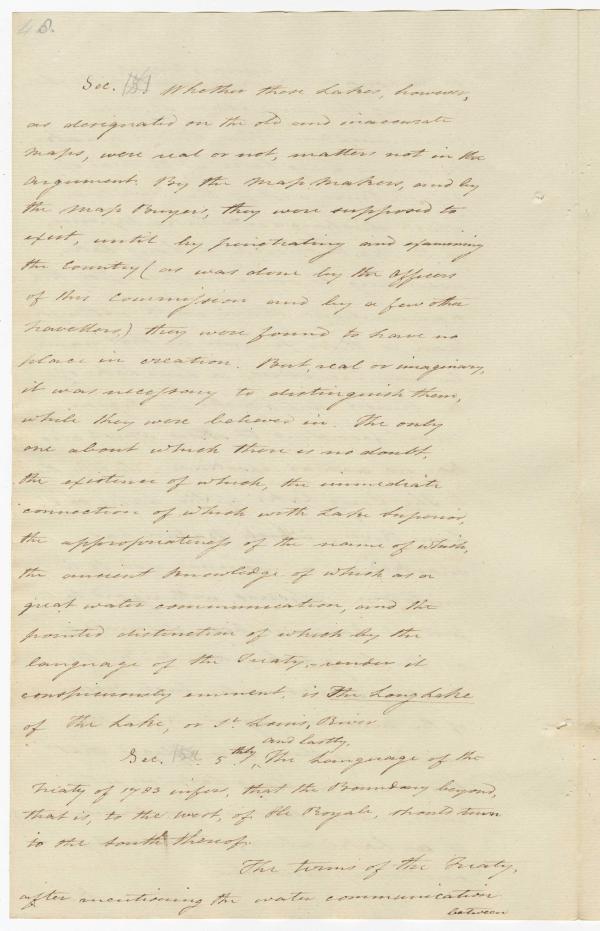 48.
Sec. 151 Whether these Lakes, however,
as designated on the old and inaccurate
maps, were real or not, matters not in the
argument. By the Map Makers, and by
the Map Buyers, they were supposed to
exist, until by penetrating and examining
the Country (as was done by the Officers
of this Commission and by a few other
travellers,) they were found to have no
place in creation. But, real or imaginary,
it was necessary to distinguish them,
while they were believed in. The only
one about which there is no doubt,
the existence of which, the immediate
connection of which with Lake Superior,
the appropriateness of the name of which,
the ancient knowledge of which as a
great water communication, and the
pointed distinction of which by the
language of the Treaty, - render it
conspicuously eminent, is The Long Lake
of the Lake, or St. Louis, River
and lastly,
Sec. 5thly, The Language of the
Treaty of 1783 infers, that the Boundary beyond,
that is, to the west, of Ile Royale, should turn
to the south thereof.
The terms of the Treaty,
after mentioning the water communication
between